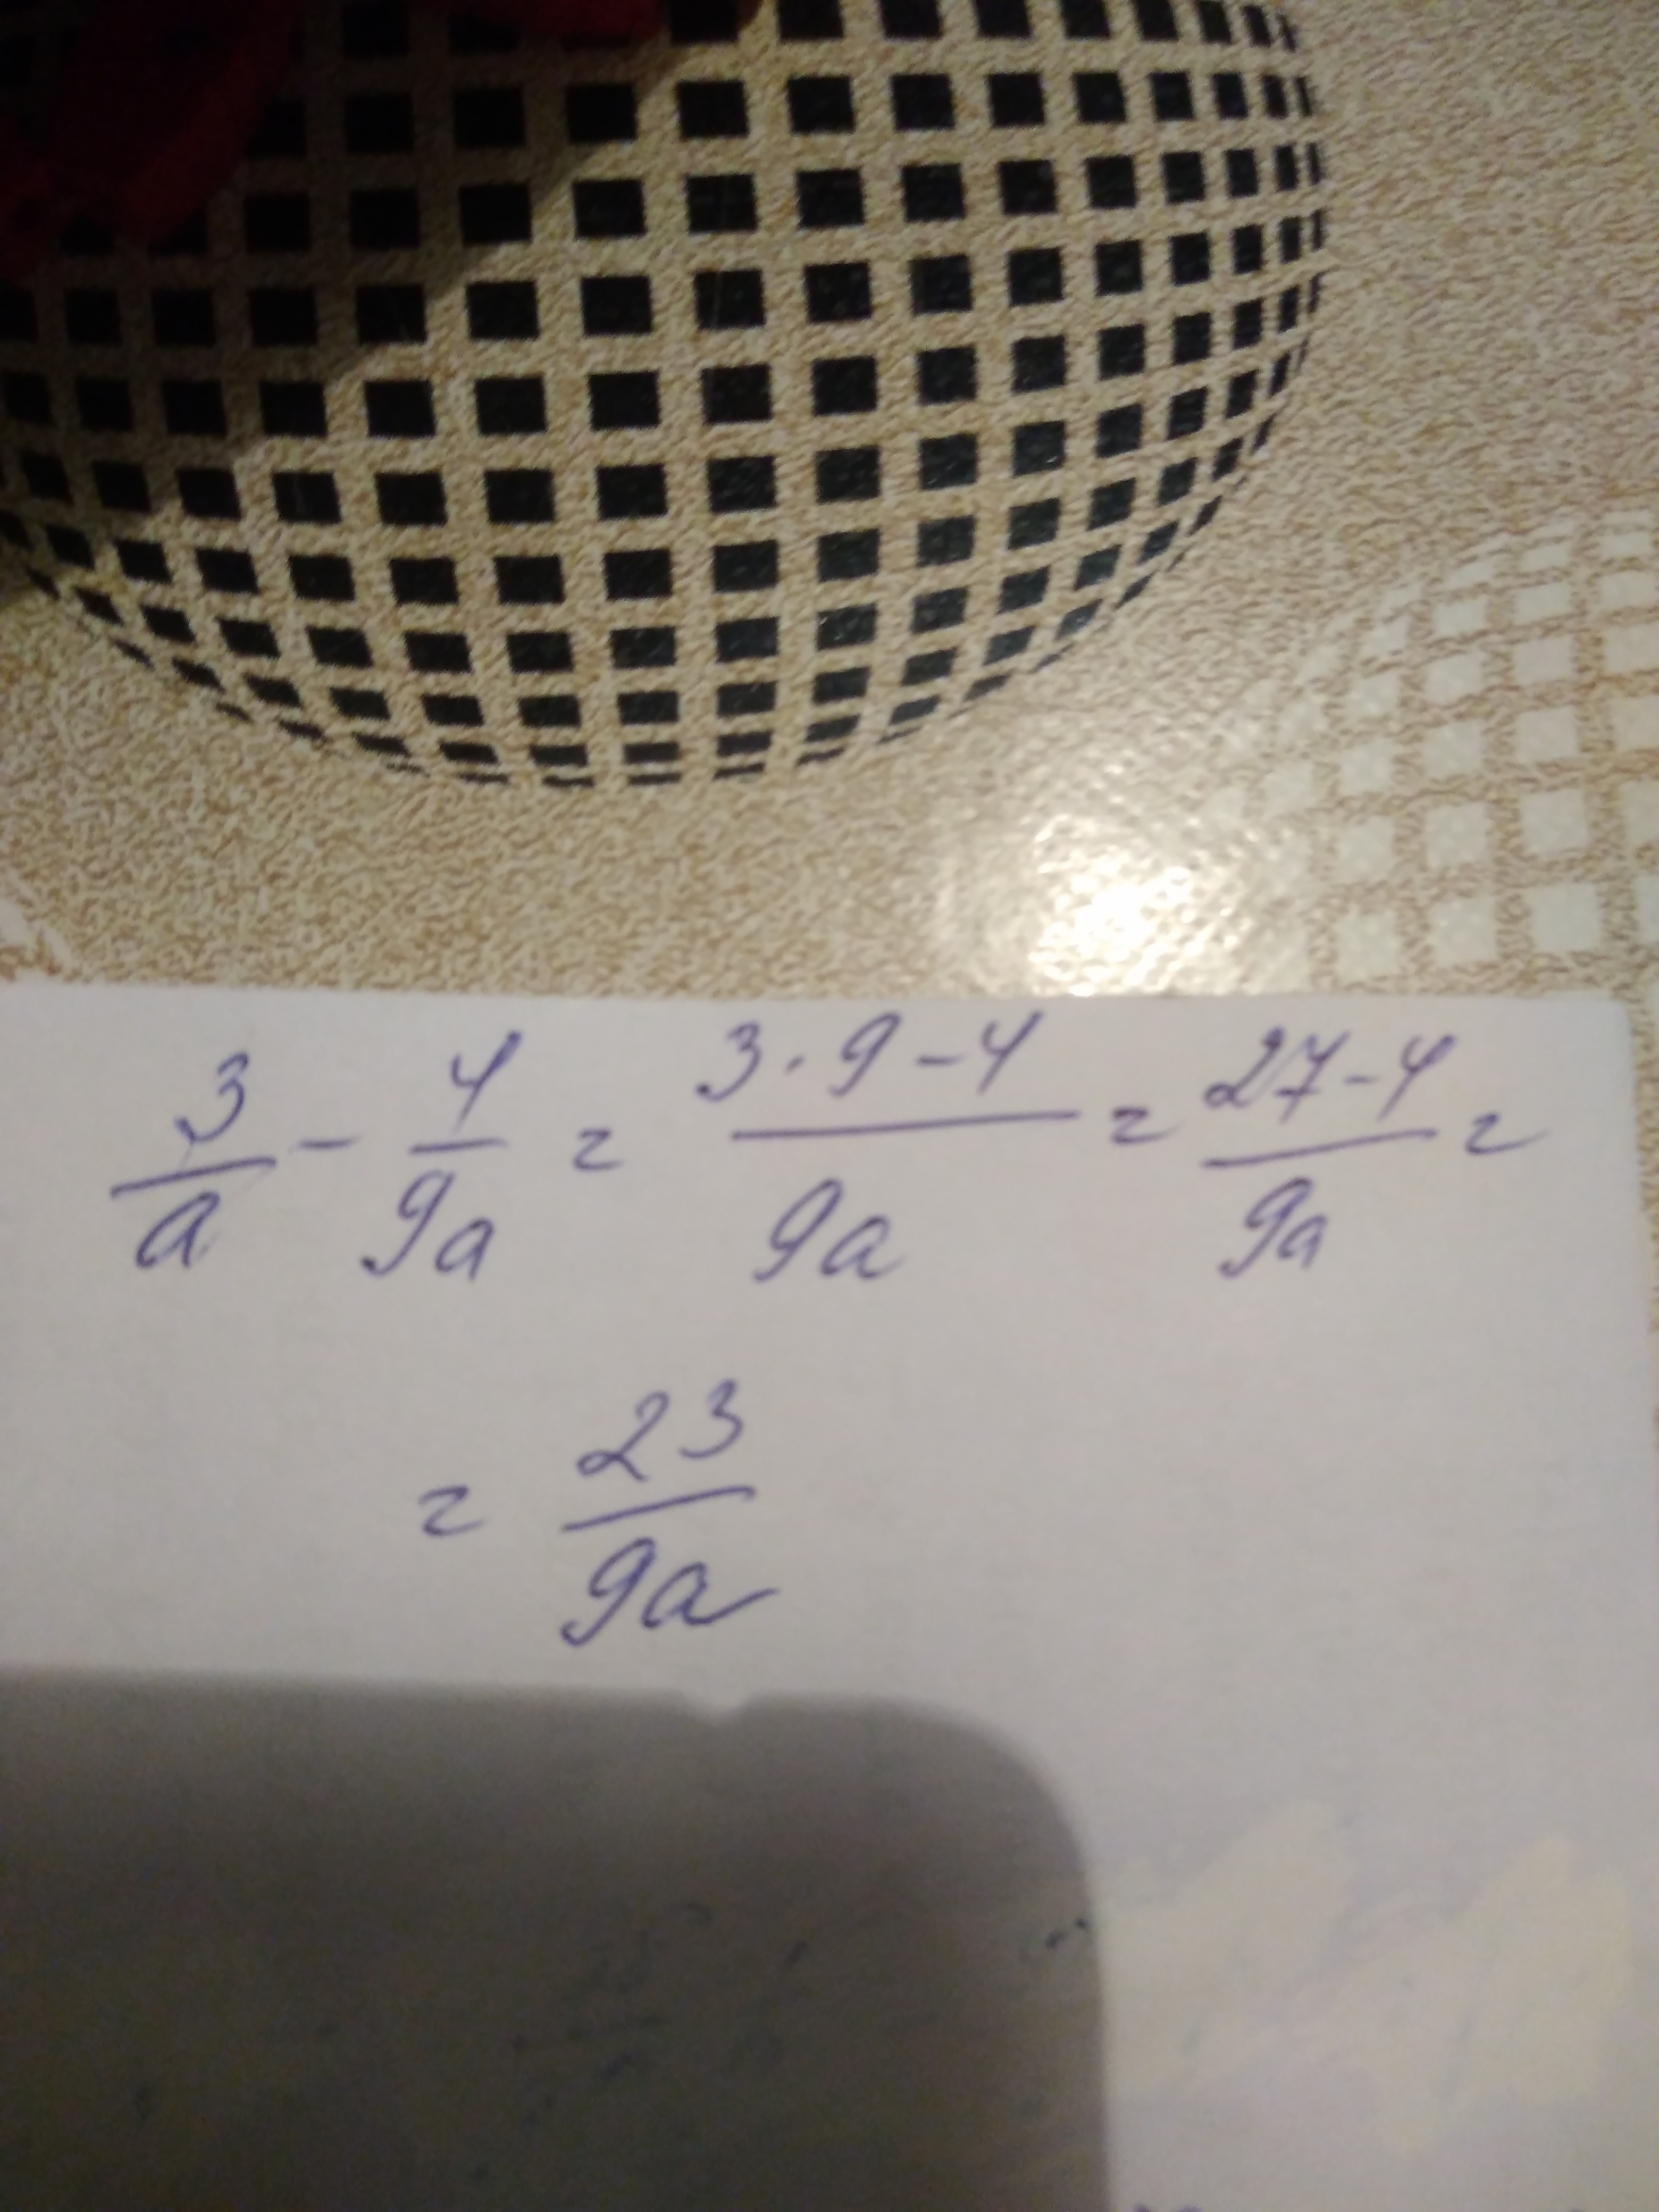 3/a - 4/9a = 3·9-4/9a = 27-4/9a =
= 23/9a